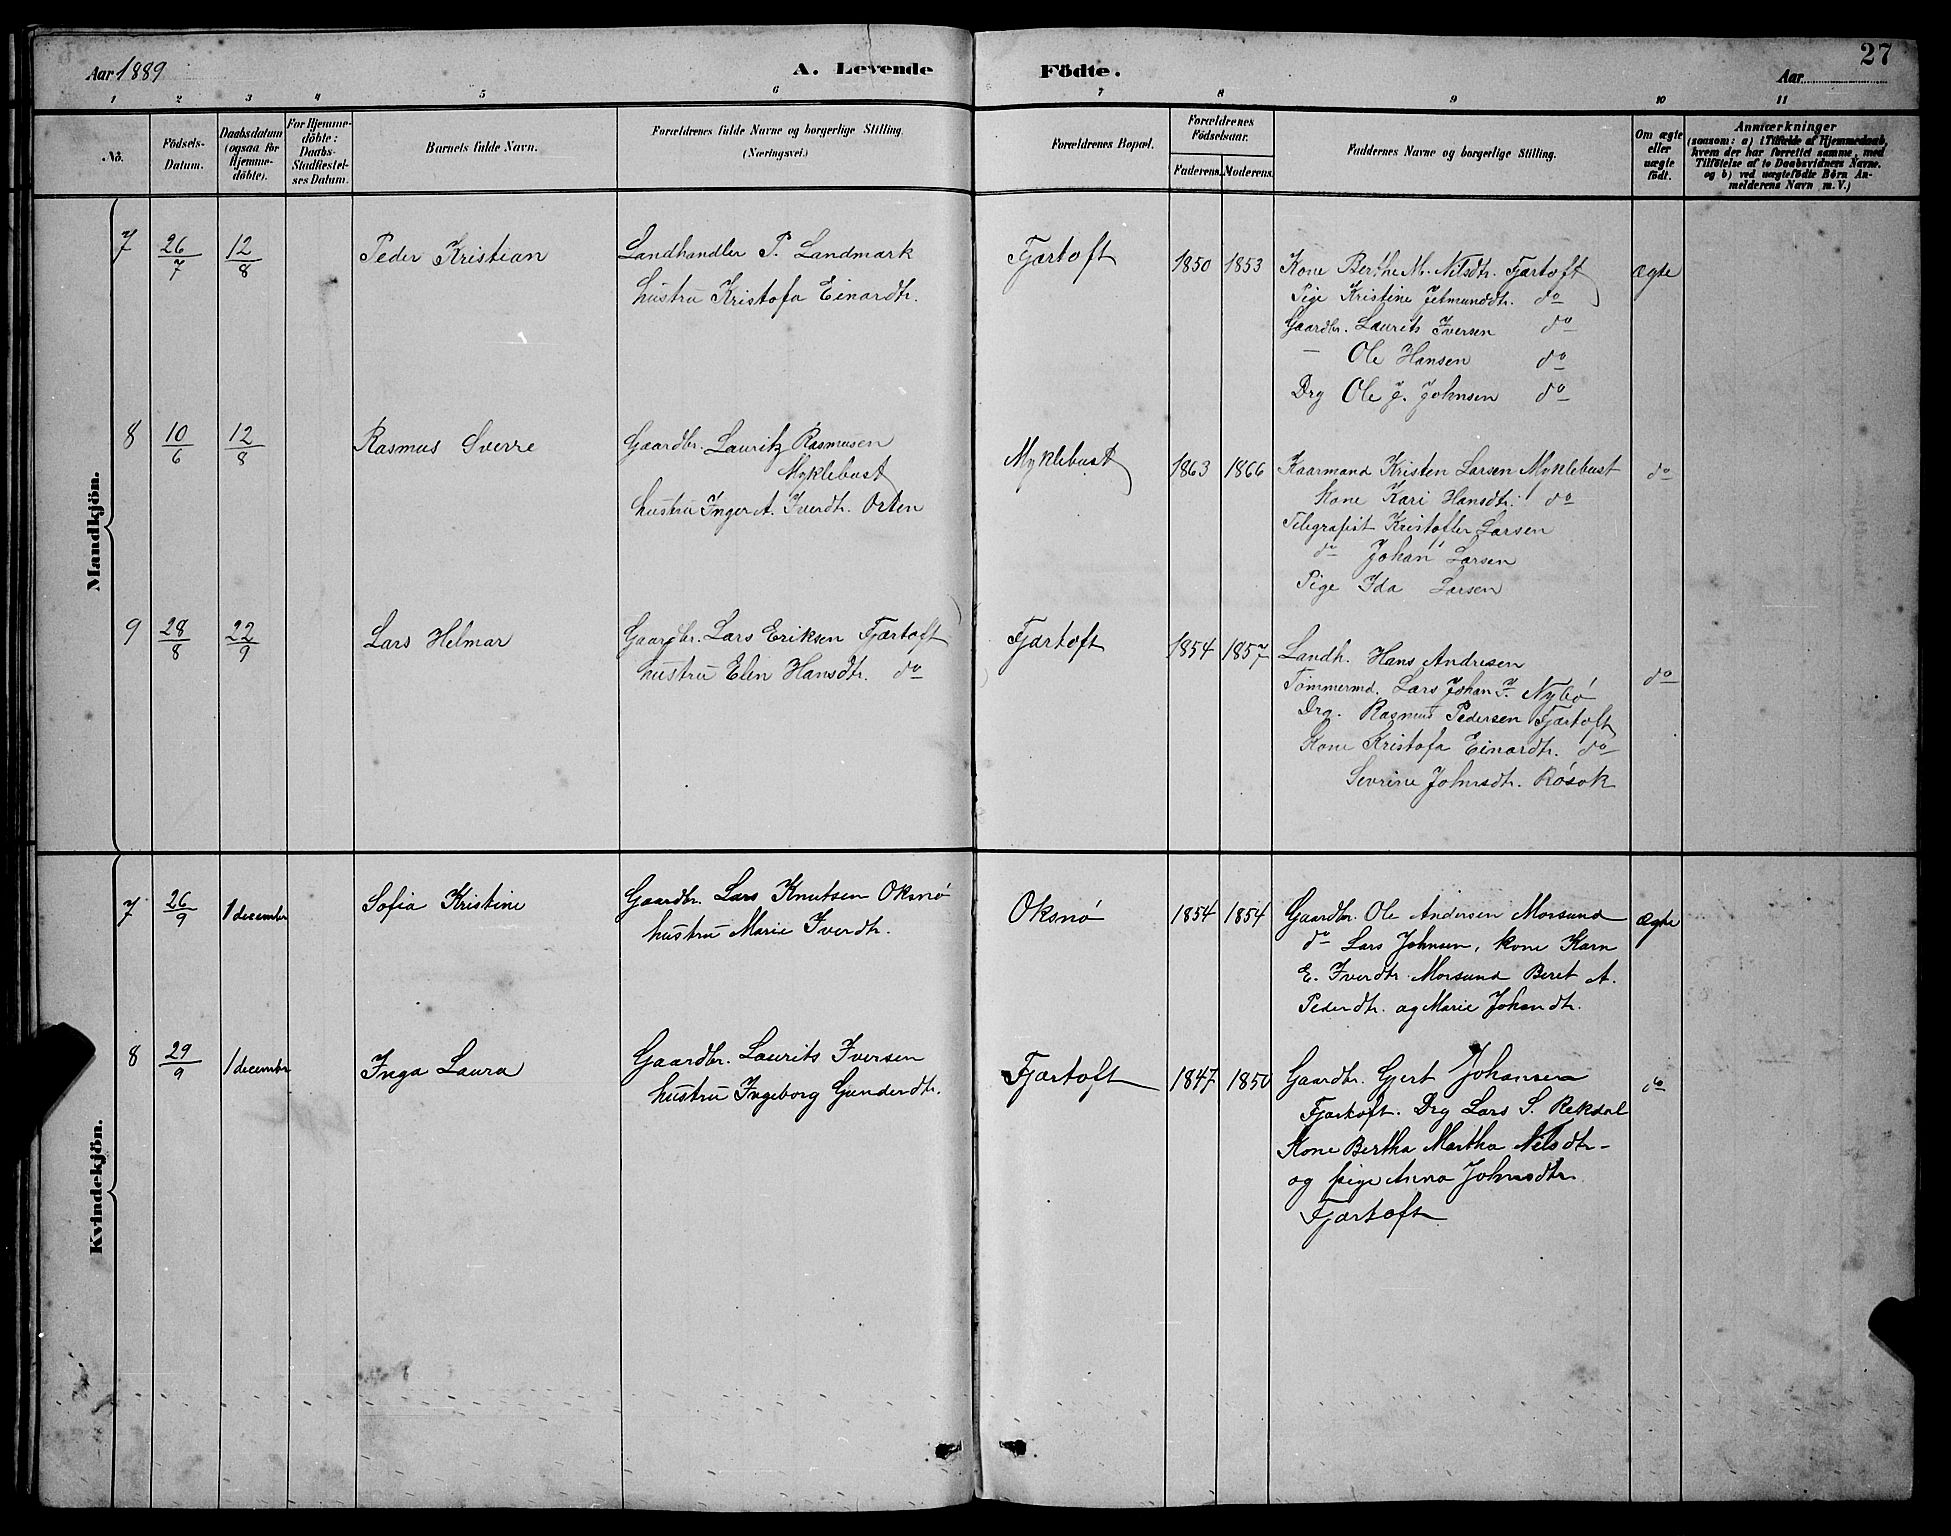 27
Aar 1889
A. Levende Födte.
Aar
1 2 3 4 5 6 7 8 9 10 11
No.
Födsels-Datum.
Daabsdatum (ogsaa for Hjemme-döbte).
For Hjemme-döbte: Daabs-Stadfæstel-ses Datum.
Barnets fulde Navn.
Forældrenes fulde Navne og borgerlige Stilling. (Næringsvei.)
Forældrenes Bopæl.
Forældrenes Födselsaar.
Faderens. Moderens.
Faddernes Navne og borgerlige Stilling.
Om ægte eller uægte födt.
Anmærkninger
(saasom: a) i Tilfælde af Hjemmedaab, hvem der har forrettet samme, med Tilföielse af to Daabsvidners Navne. og b) ved uægtefödte Börn An-melderens Navn m. V.)
Mandkjön.
7 26/7 12/8 Peder Kristian
Landhandler P. Landmark
hustru Kristofa Einardtr.
Fjærtoft 1850 1853
Kone Berthe M. Nilsdtr. Fjærtoft
Pige Kristine Jetmunddtr. do
Gaardbr. Laurits Iversen do
— Ole Hansen do
Drg Ole J. Johnsen do
ægte
8 10/6 12/8 Rasmus Sverre
Gaardbr. Lauritz Rasmusen
Myklebust
hustru Inger A. Iverdtr. Orten
Myklebust 1863 1866
Kaarmand Kristen Larsen Myklebust
Kone Kari Hansdtr. do
Telegrafist Kristoffer Larsen
do Johan Larsen
Pige Ida Larsen
do
9 28/8 22/9 Lars Helmar
Gaardbr. Lars Eriksen Fjærtoft
hustru Elen Hansdtr. do
Fjærtoft 1854 1857
Landh. Hans Andresen
Tømmermd. Lars Johan I. Nybø
Drg. Rasmus Pedersen Fjærtoft
Kone Kristofa Einardtr. do
Sevrine Johnsdtr. Røsok
do
Kvindekjön.
7 26/9 1 december Sofia Kristine
Gaardbr. Lars Knutsen Oksnø
hustru Marie Iverdtr.
Oksnø 1854 1854
Gaardbr. Ole Andersen Morsund
do Lars Johnsen, kone Karn
E. Iverdtr. Morsund Beret A.
Pederdtr. og Marie Johandtr.
ægte
8 29/9 1 december Inga Laura
Gaardbr. Laurits Iversen
hustru Ingeborg Gunderdtr.
Fjærtoft 1847 1850
Gaardbr. Gjert Johansen
Fjærtoft. Drg Lars S. Rekdal
Kone Bertha Martha Nilsdtr-
og pige Anna Johnsdtr
Fjærtoft
do